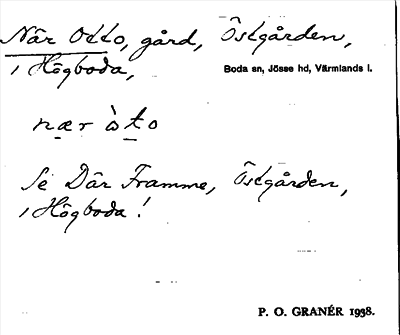 När Otto, gård, Östgården,
i Högboda,
Boda sn, Jösse hd, Värmlands l.
nær òto
Se Där Framme, Östgården,
i Högboda!
P. O. GRANÉR 1938.